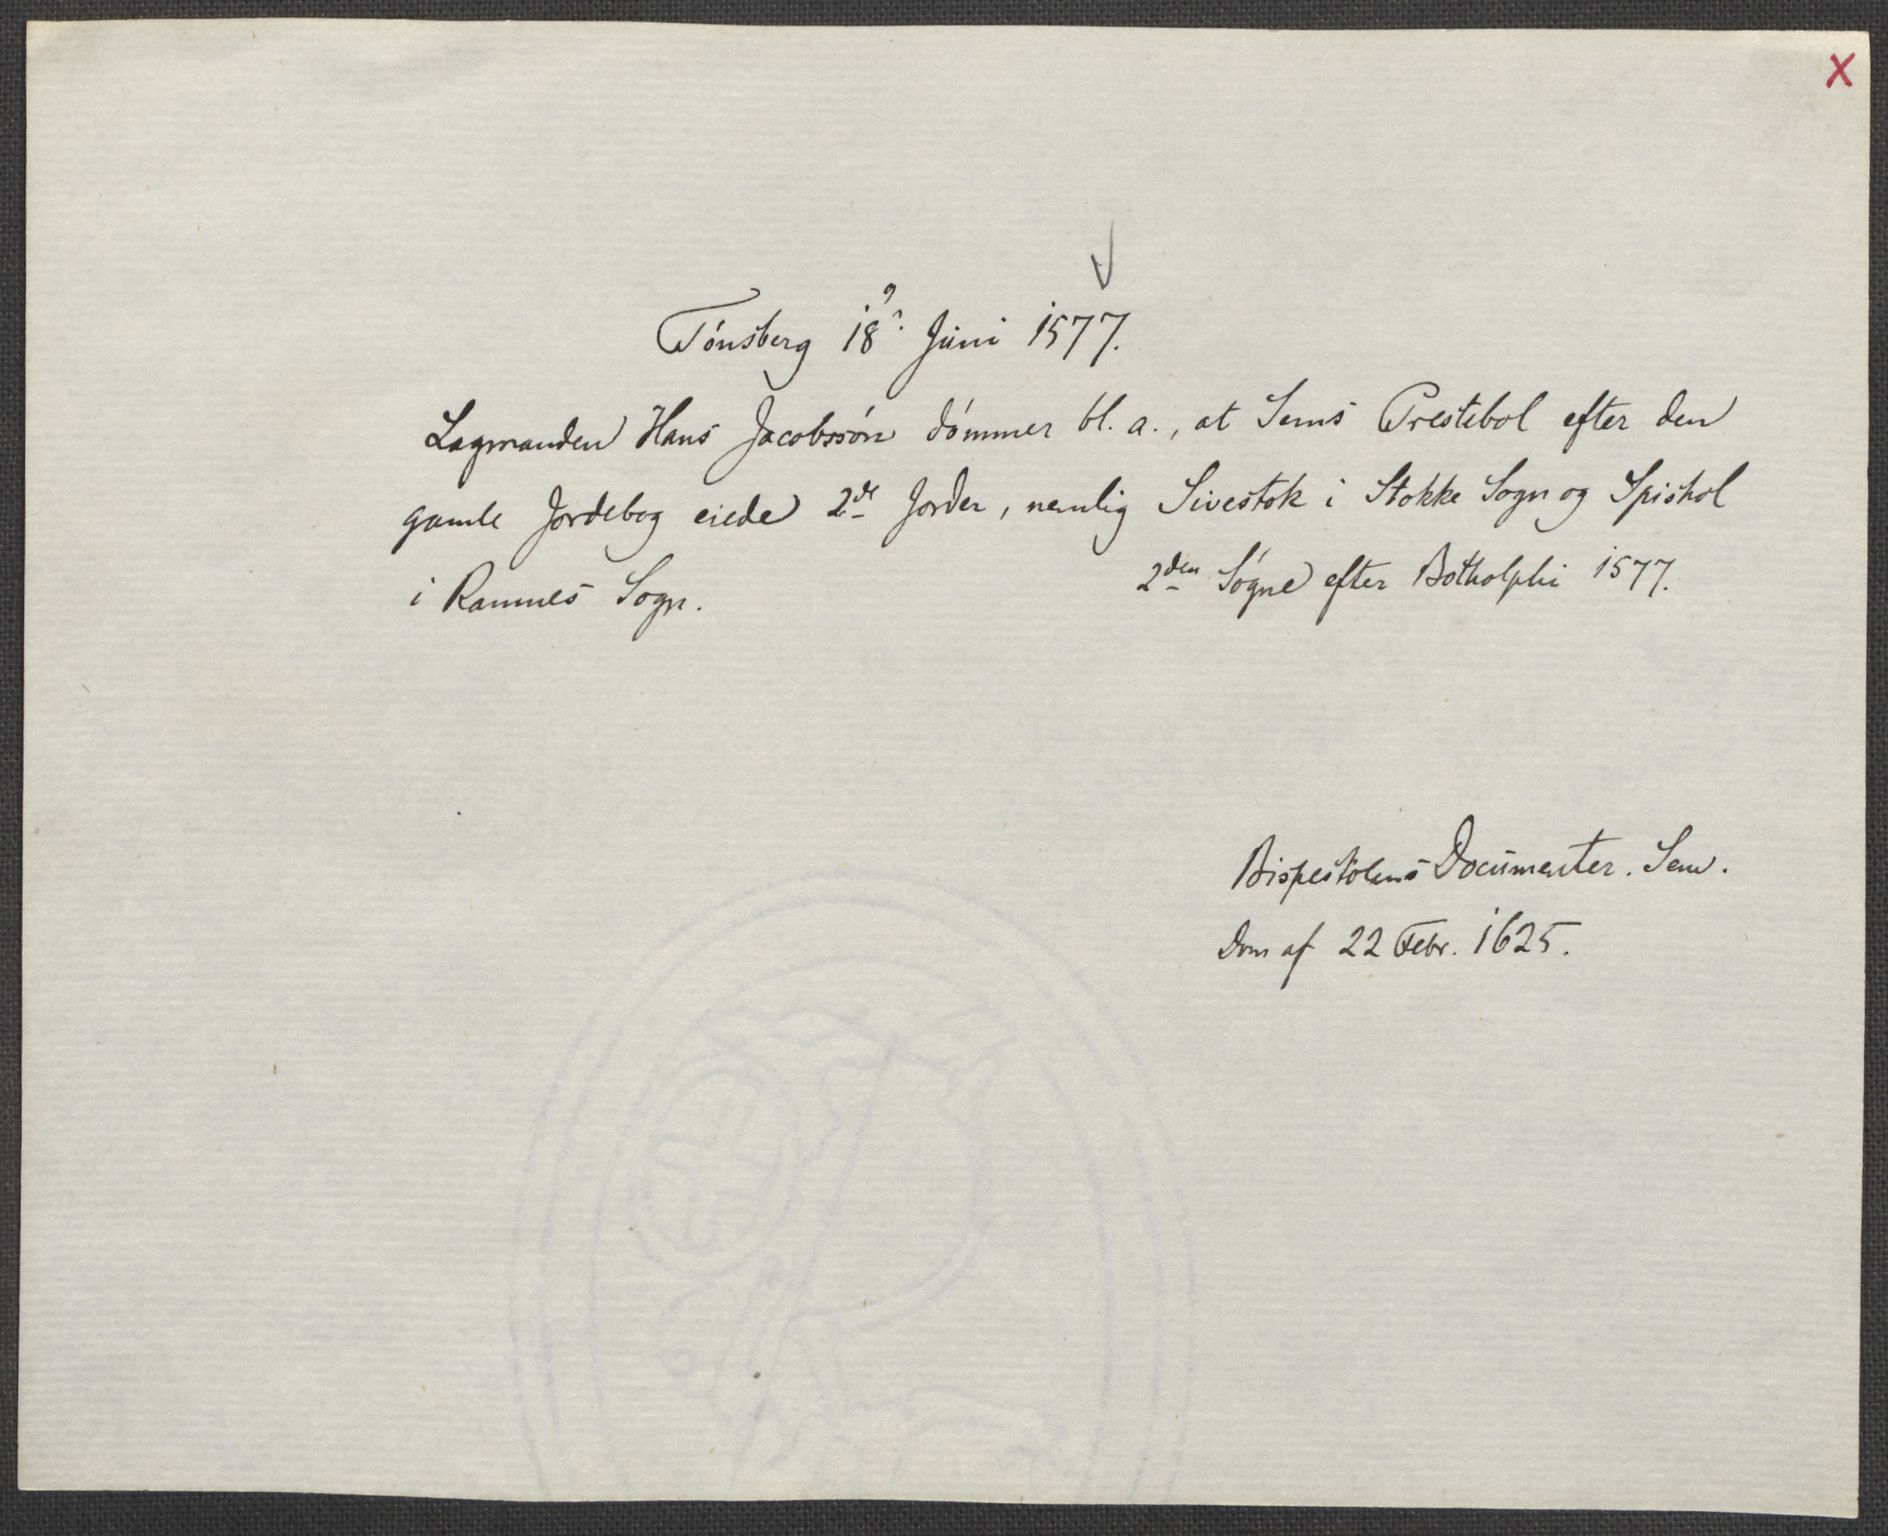 X
Tónsberg 18? Juni 1577.
Lagmanden Hans Jacobssón dómmer bl. a., at Sems Prestebol efter den
gamle Jordebog eiede 2de Jorder, nemlig Sivestok i Stokke Sogn og Spishol
i Ramnes Sogn.
2den Sógne efter Botholphi 1577.
Bispestolens Documenter. Sem.
Dom af 22 Febr. 1625.